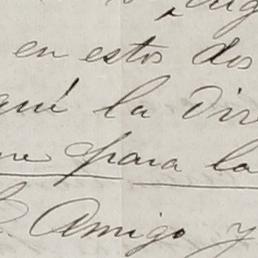 en estos dos
qué la Dir
para la
Amigo y